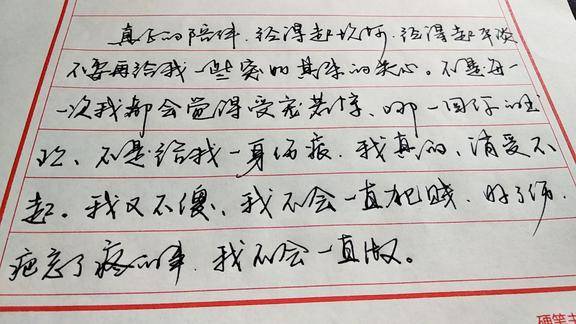 真正的陪伴.经得起坎坷.经得起平淡
不要再给我一些突如其来的关心。不是每一
一次我都会觉得受宠若惊、哪一回你的出
现、不是给我一身伤痕.我真的、消受不
起。我又不傻、我不会一直犯贱.好了伤.
疤忘了疼的事.我不会一直做。
硬笔